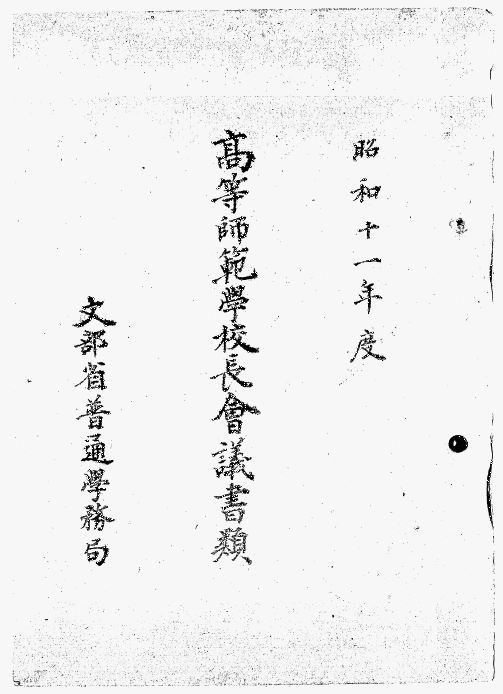 昭和十一年度
高等師範學校長會議書類
文部省普通學務局